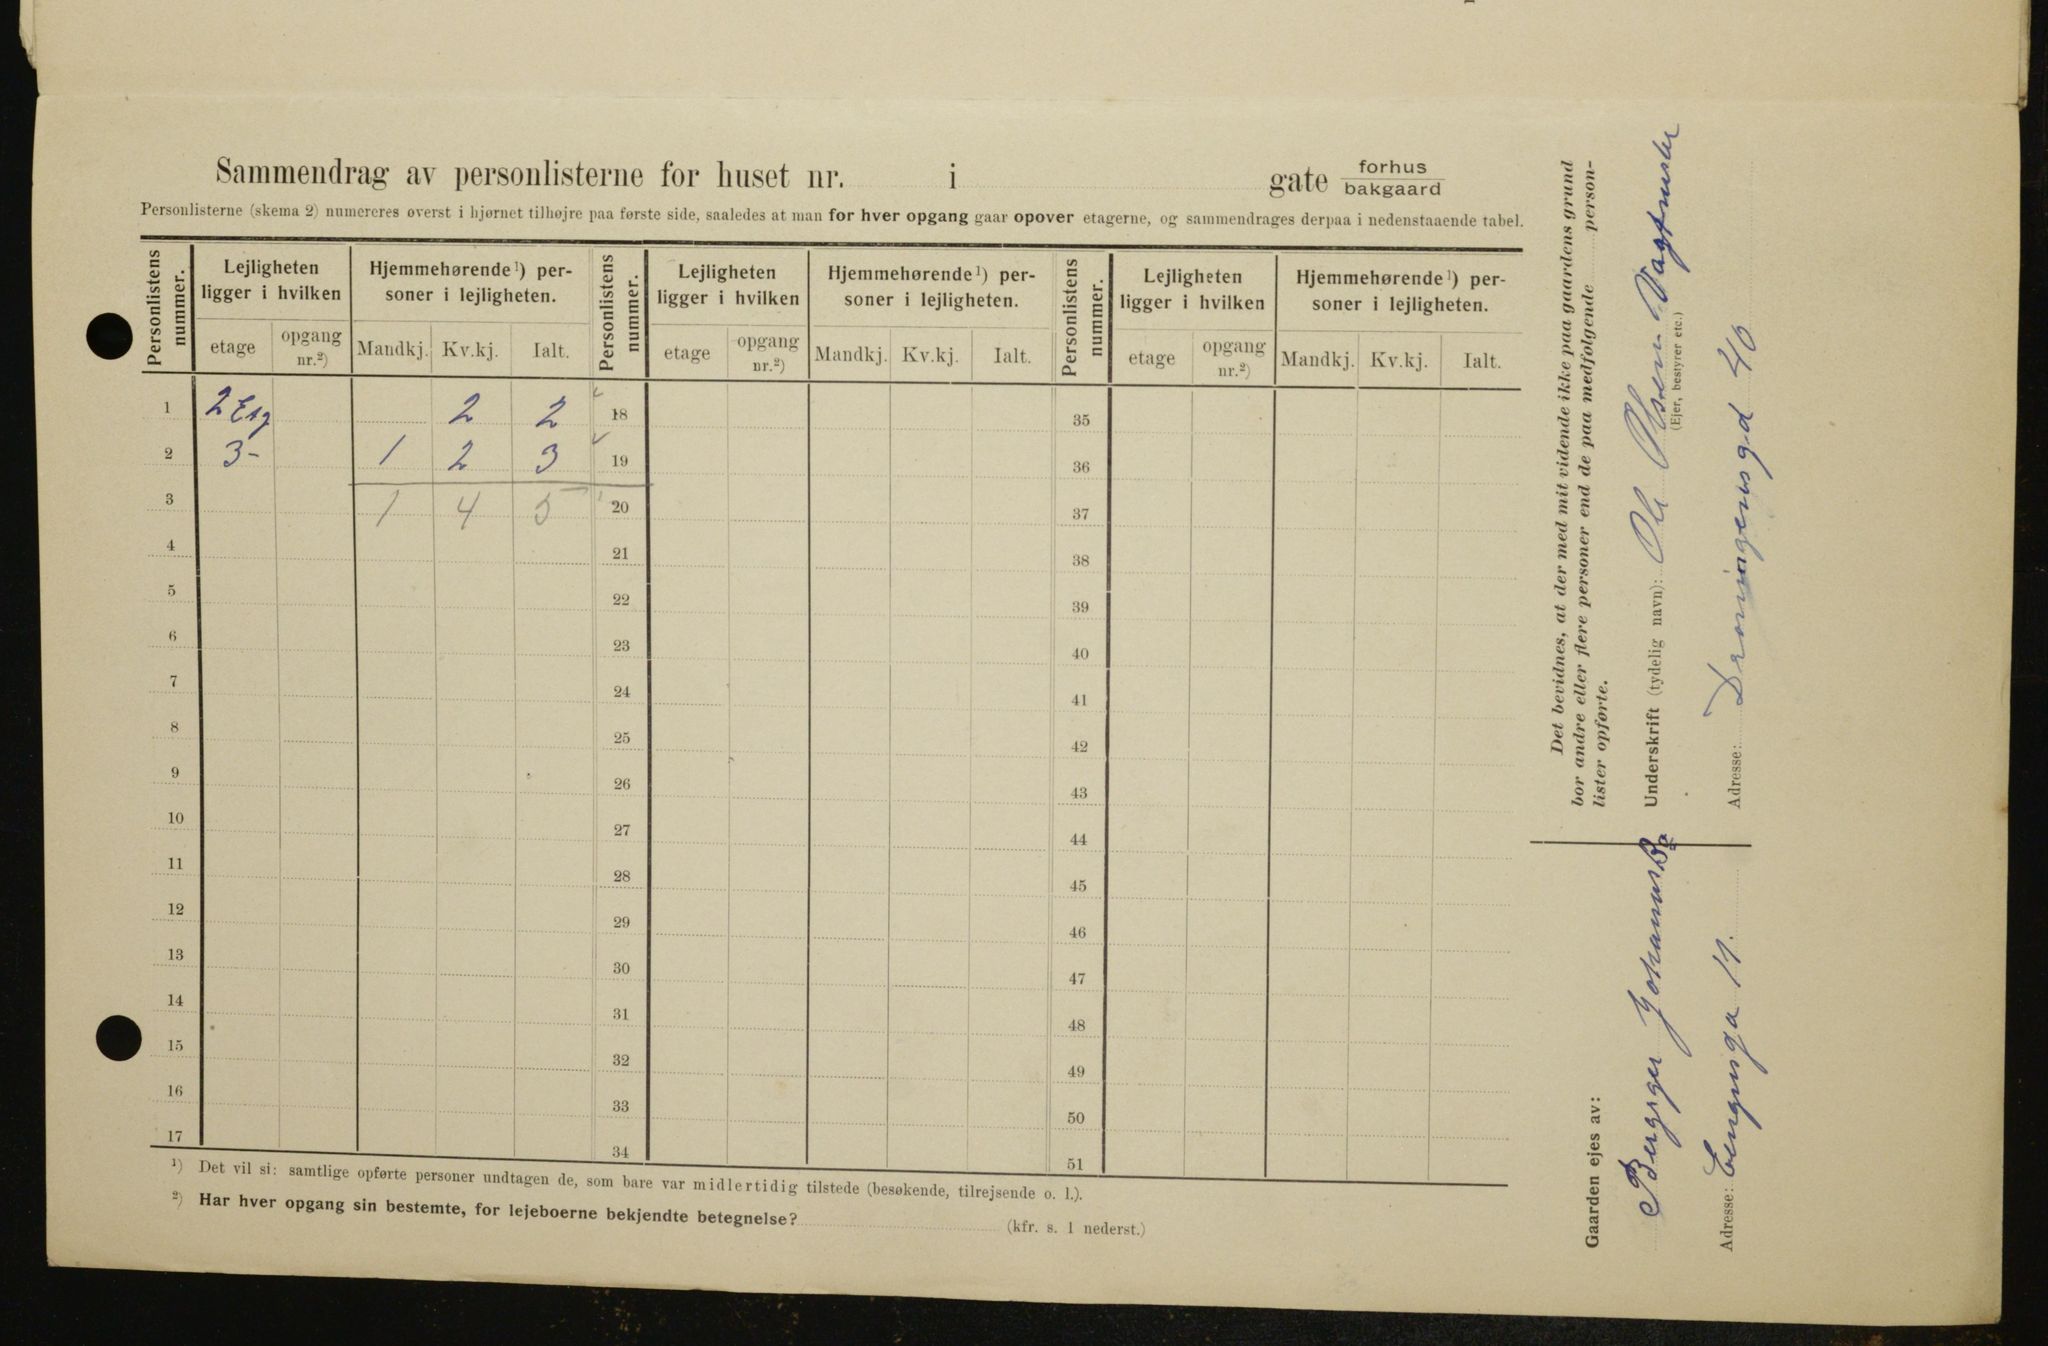 Sammendrag av personlisterne for huset nr. i gate forhus
bakgaard
Personlisterne (skema 2) numereres øverst i hjørnet tilhøjre paa første side, saaledes at man for hver opgang gaar opover etagerne, og sammendrages derpaa i nedenstaaende tabel.
Personlistens nummer. Lejligheten ligger i hvilken Hjemmehørende¹) personer i lejligheten. Personlistens nummer. Lejligheten ligger i hvilken Hjemmehørende¹) personer i lejligheten. Personlistens nummer. Lejligheten ligger i hvilken Hjemmehørende¹) personer i lejligheten.
etage opgang nr.²) Mandkj. Kv.kj. Ialt. etage opgang nr.²) Mandkj. Kv.kj. Ialt. etage opgang nr.²) Mandkj. Kv.kj. Ialt.
1 2 Etg 2 2 18 35
2 3- 1 2 3 19 36
3 1 4 5 20 37
4 21 38
5 22 39
6 23 40
7 24 41
8 25 42
9 26 43
10 27 44
11 28 45
12 29 46
13 30 47
14 31 48
15 32 49
16 33 50
17 34 51
¹) Det vil si: samtlige opførte personer undtagen de, som bare var midlertidig tilstede (besøkende, tilrejsende o. l.).
²) Har hver opgang sin bestemte, for lejeboerne bekjendte betegnelse? (kfr. s. 1 nederst.)
Det bevidnes, at der med mit vidende ikke paa gaardens grund
bor andre eller flere personer end de paa medfølgende person-
lister opførte.
Underskrift (tydelig navn): Ole Olsen Vagtmester
(Ejer, bestyrer etc.)
Adresse: Dronningensgd 40
Gaarden ejes av:
Birger Johannes
Adresse: Engnsga 11.